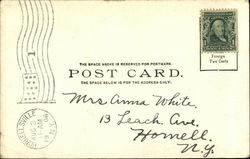 THE SPACE ABOVE IS RESERVED FOR POSTMARK.
POST CARD.
THE SPACE BELOW IS FOR THE ADDRESS ONLY.
Foreign
Two Cents
HORNELLSVILLE
Mrs Anna White.
13 Leach Ave.
Hornell.
N.Y.